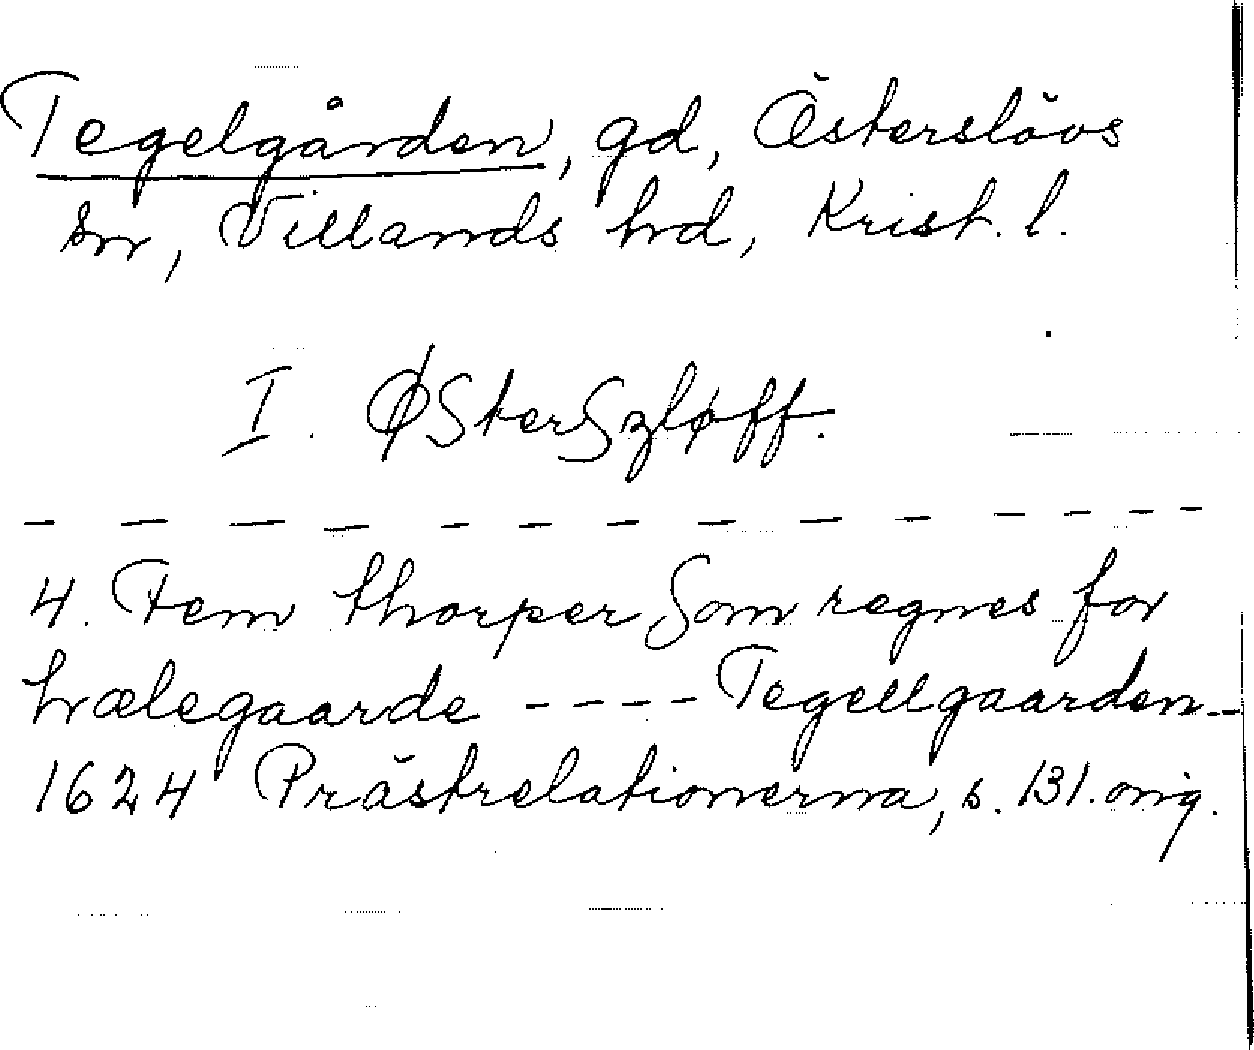 Tegelgården, gd, Österslövs
sn, Villands hd, Krist. l.
I. ØSterSzløff.
— — — — — — — — — — — — — —
4. Fem thorper Som regnes for
hælegaarde - - - - Tegellgaarden -
1624 Prästrelationerna, s. 131. orig.